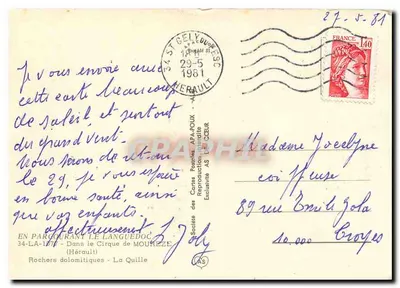 27-5-81
34 ST GELY DU FESC
29-5
1981
HERAULT
FRANCE
1,40
Je vous envoie avec
cette carte beaucoup
de soleil, et surtout
du grand vent.
Nous serons de retour
le 29, je vous espère
en bonne santé, ainsi
que vos enfants.
affectueusement
Madame Jocelyne
coiffeuse
89 rue Emile Zola
10.000 Troyes
EN PARCOURANT LE LANGUEDOC
Dans le Cirque de MOUREZE
(Hérault)
Rochers dolomitiques - La Quille
Société des Cartes Postales APA-POUX
Reproduction interdite
Exclusivité AS DE CŒUR